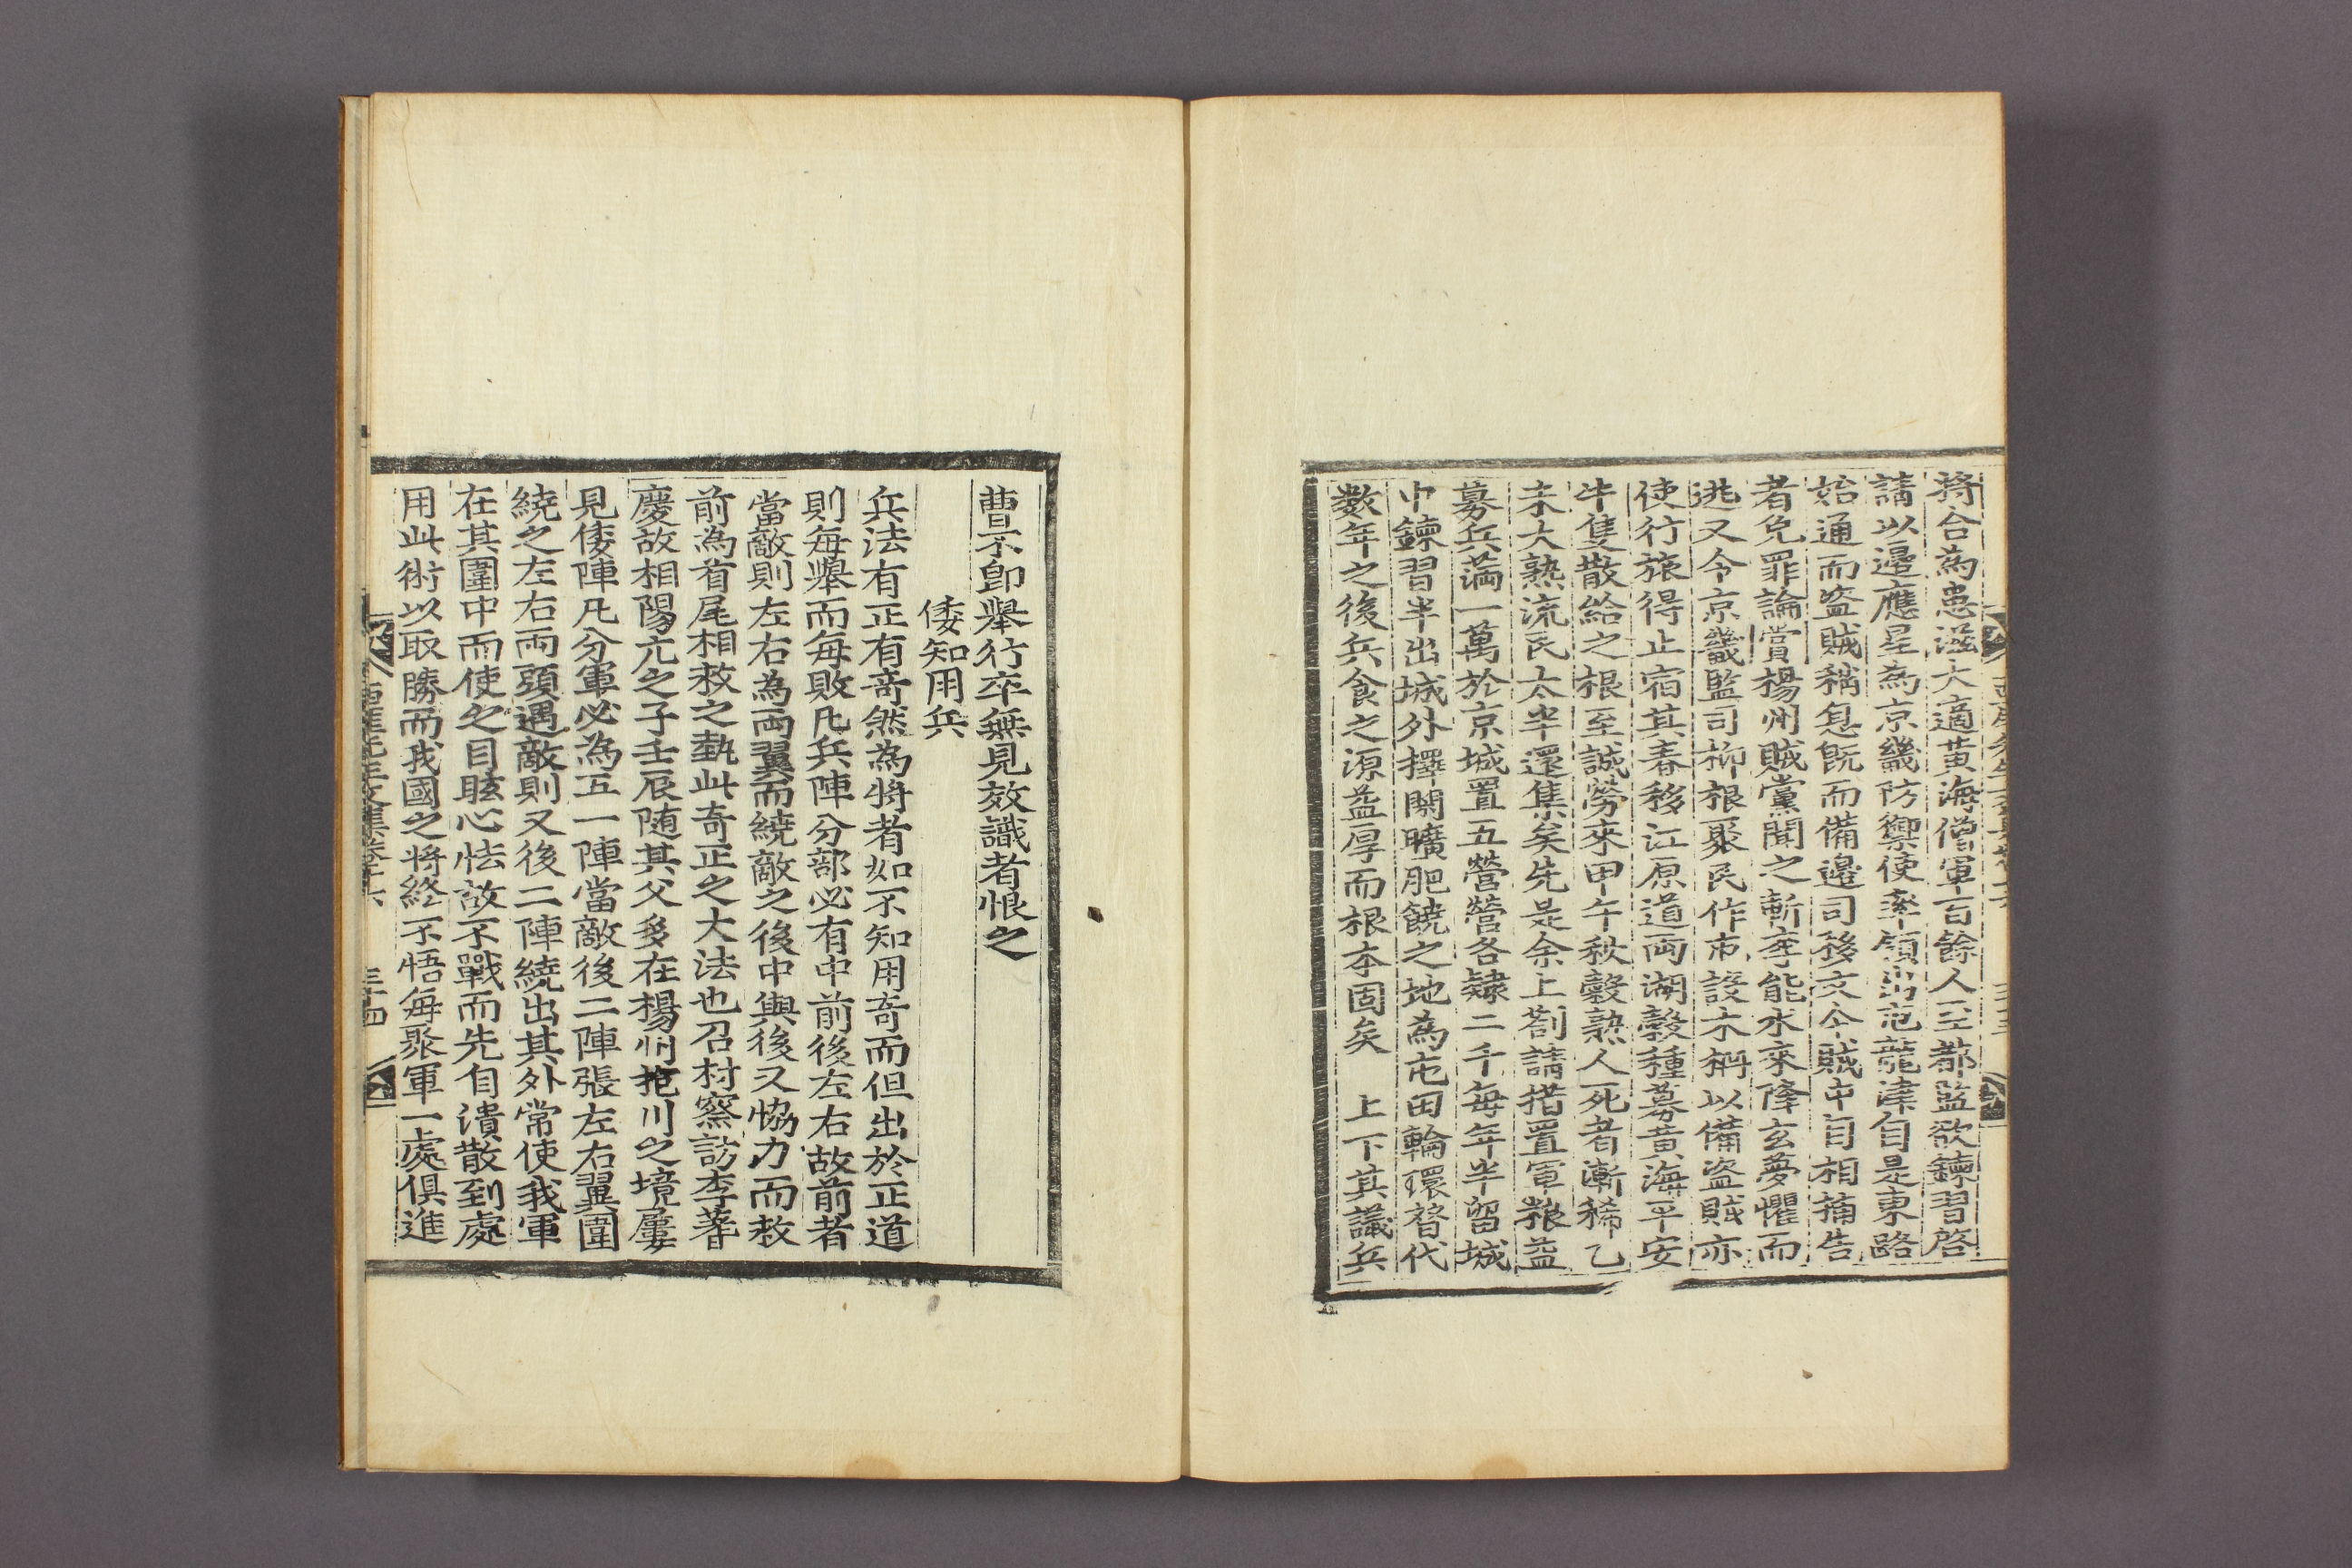 將合為患滋大適黃海僧軍百餘人至都監欲鍊習啓
請以邊應星為京畿防禦使率領出屯龍津自是東路
始通而盗賊稱息旣而備邊司移文令賊中自相捕告
者免罪論賞楊州賊黨聞之斬李能水來降玄夢懼而
逃又令京畿監司柳根聚民作市設木柵以備盗賊亦
使行旅得止宿其春移江原道両湖穀種募黃海平安
牛隻散給之根至誠勞來甲午秋穀熟人死者漸稀乙
未大熟流民太半還集矣先是余上劄請措置軍粮益
募兵滿一萬於京城置五營營各隸二千每年半留城
中鍊習半出城外擇閑曠肥饒之地為屯田輪環替代
数年之後兵食之源益厚而根本固矣 上下其議兵
曹不卽舉行卒無見效識者恨之
倭知用兵
兵法有正有奇然為將者如不知用奇而但出於正道
則每舉而每敗凡兵陣分部必有中前後左右故前者
當敵則左右為両翼而繞敵之後中與後又恊力而救
前為首尾相救之埶此奇正之大法也召村察訪李蓍
慶故相陽元之子壬辰随其父多在楊州抱川之境屢
見倭陣凡分軍必為五一陣當敵後二陣張左右翼圍
繞之左右両頭遇敵則又後二陣繞出其外常使我軍
在其圍中而使之目眩心怯故不戰而先自潰散到處
用此術以取勝而我國之將終不悟每聚軍一處俱進
西厓先生文集卷之十六 三十四